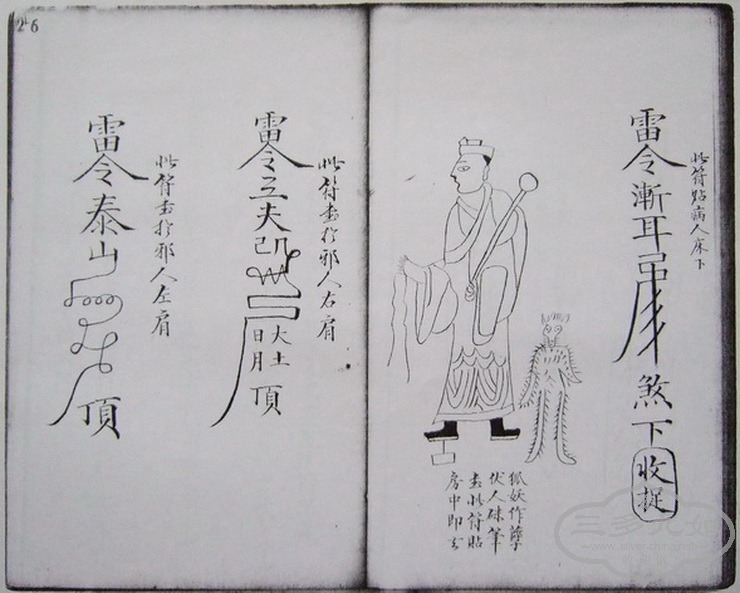 此符貼病人床下
雷令漸耳 煞下收捉
狐妖作孽
伏人硃筆
畫此符貼
房中即去
此符畫於邪人右肩
雷令 夫 大土日月頂
此符畫於邪人左肩
雷令泰山 頂
26
三多九如